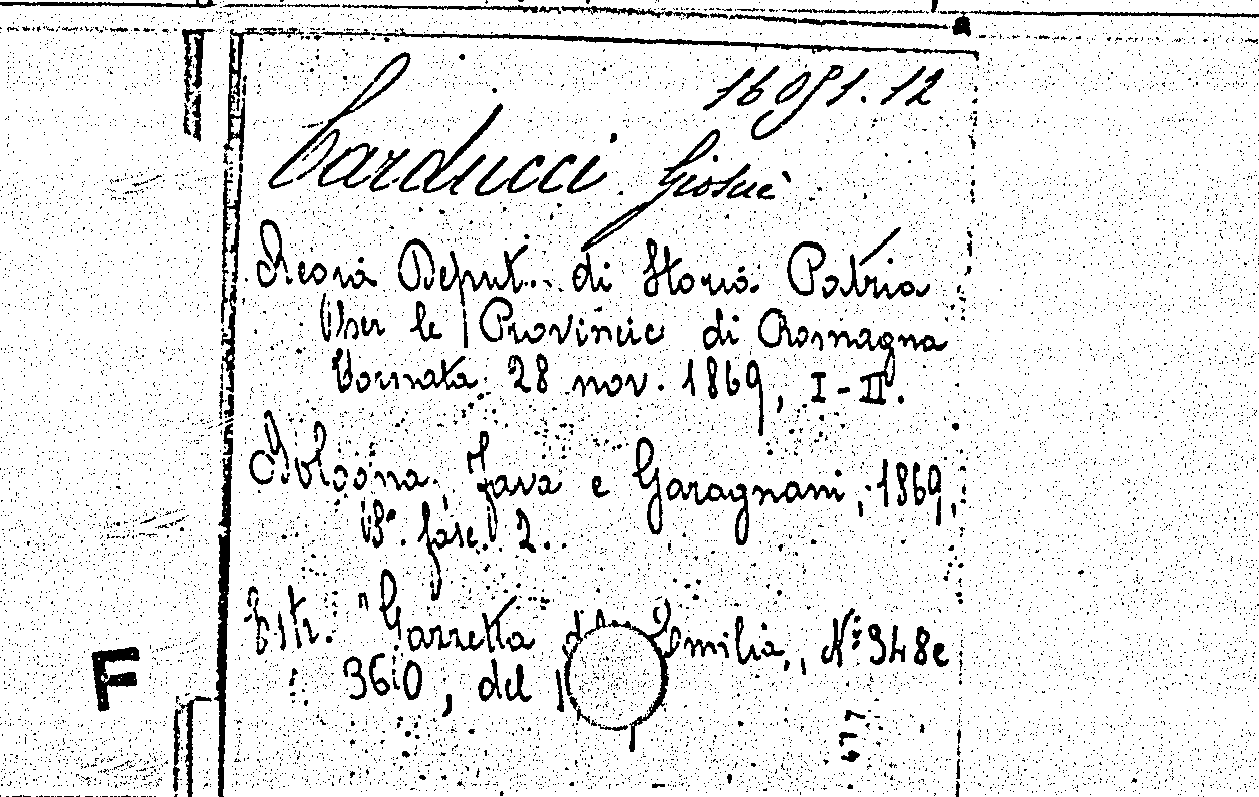 16051.12
Carducci Giosuè
Regia Deput. di Storia Patria
per le Provincie di Romagna
Tornata 28 nov. 1869, I-II.
Bologna, Fava e Garagnani, 1869,
8°. fasc. 2.
Estr. "Gazzetta dell' Emilia, N° 348 e
360, del
F
477